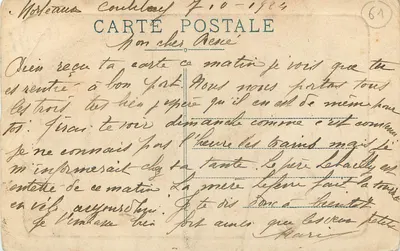 Morteaux Coulibœuf 7-10-1924
61
CARTE POSTALE
Mon cher René
Bien reçu ta carte ce matin je vois que tu
es rentré à bon port. Nous nous portons tous
les trois très bien j'espère qu'il en est de même pour
toi. J'irai te voir dimanche comme c'est convenu
Je ne connais pas l'heure des trains mais je
m'informerai chez ta tante. Le père
entête de ce matin La mère fait la
en vélo aujourd'hui. Je te dis donc à bientôt
Je t'embrasse bien fort ainsi que